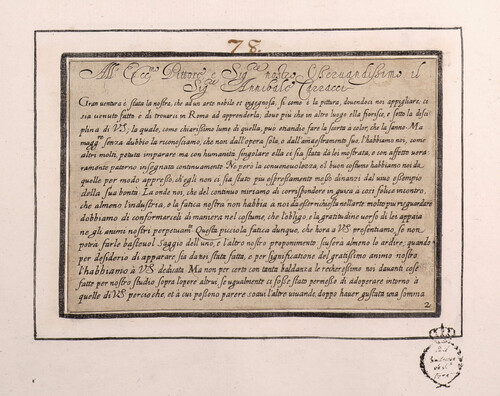 78.
All' Ecc.te Pittore e Sig.re nostro Osservandissimo il
Sig.re Annibale Carracci
Gran ventura è stata la nostra, che ad un arte nobile et ingegnosa, si come è la pittura, dovendoci noi appigliare, ci
sia venuto fatto e di trovarci in Roma ad apprenderla, dove più che in altro luogo ella fiorisce, e sotto la disci
plina di V.S; la quale, come chiarissimo lume di quella, può etiandio fare la scorta à color, che la sanno. Ma
magg.re senza dubbio la riconosciamo, che non dall'opera sola, o dall'amaestramento suo, l'habbiamo noi, come
altri molti, potuta imparare, ma con humanità singolare ella ci si è stata da lei mostrata, e con affetto vera,
ramente paterno insegnata continuamente. Ne però la convenevolezza, et buon costume habbiamo noi da
quelle per modo appreso, ch'egli non ci sia stato più espressamente messo dinanzi dal vivo essempio
della sua bontà. La onde noi, che del continuo miriamo di corrispondere in guisa a così felice incontro,
che almeno l'industria, e la fatica nostra non habbia à noi da esser richiesta nell'arte molto piu riguardare
dobbiamo di conformarceli di maniera nel costume, che l'obligo, e la gratitudine verso di lei appaia
ne gli animi nostri perpetuam.te Questa picciola fatica dunque, che hora a V.S. presentiamo, se non
potrà farle bastevol saggio dell'uno, e l'altro nostro proponimento scuserà almeno lo ardire; quando
per desiderio di apparare sia da noi stata fatta, e per significatione del gratissimo animo nostro
l'habbiamo à V.S. dedicata. Ma non per certo con tanta baldanza le recheressimo noi davanti cose
fatte per nostro studio sopra l'opere altrui, se ugualmente ci fosse stato permesso di adoperare intorno à
quelle di V.S. percioche, et à cui possono parere soavi l'altre vivande, doppo haver gustata una somma
2